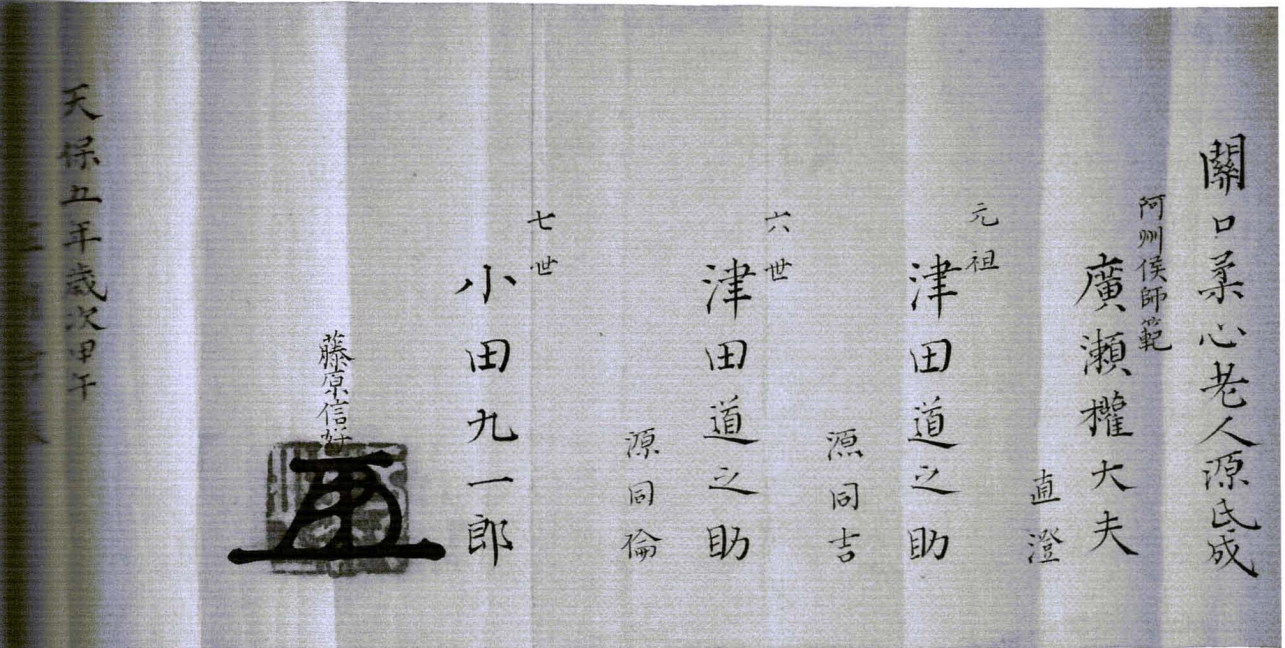 關口柔心老人源氏成
阿州侯師範
廣瀬權大夫
直澄
元祖
津田道之助
源同吉
六世
津田道之助
源同倫
七世
小田九一郎
藤原信
天保五年歳次甲午